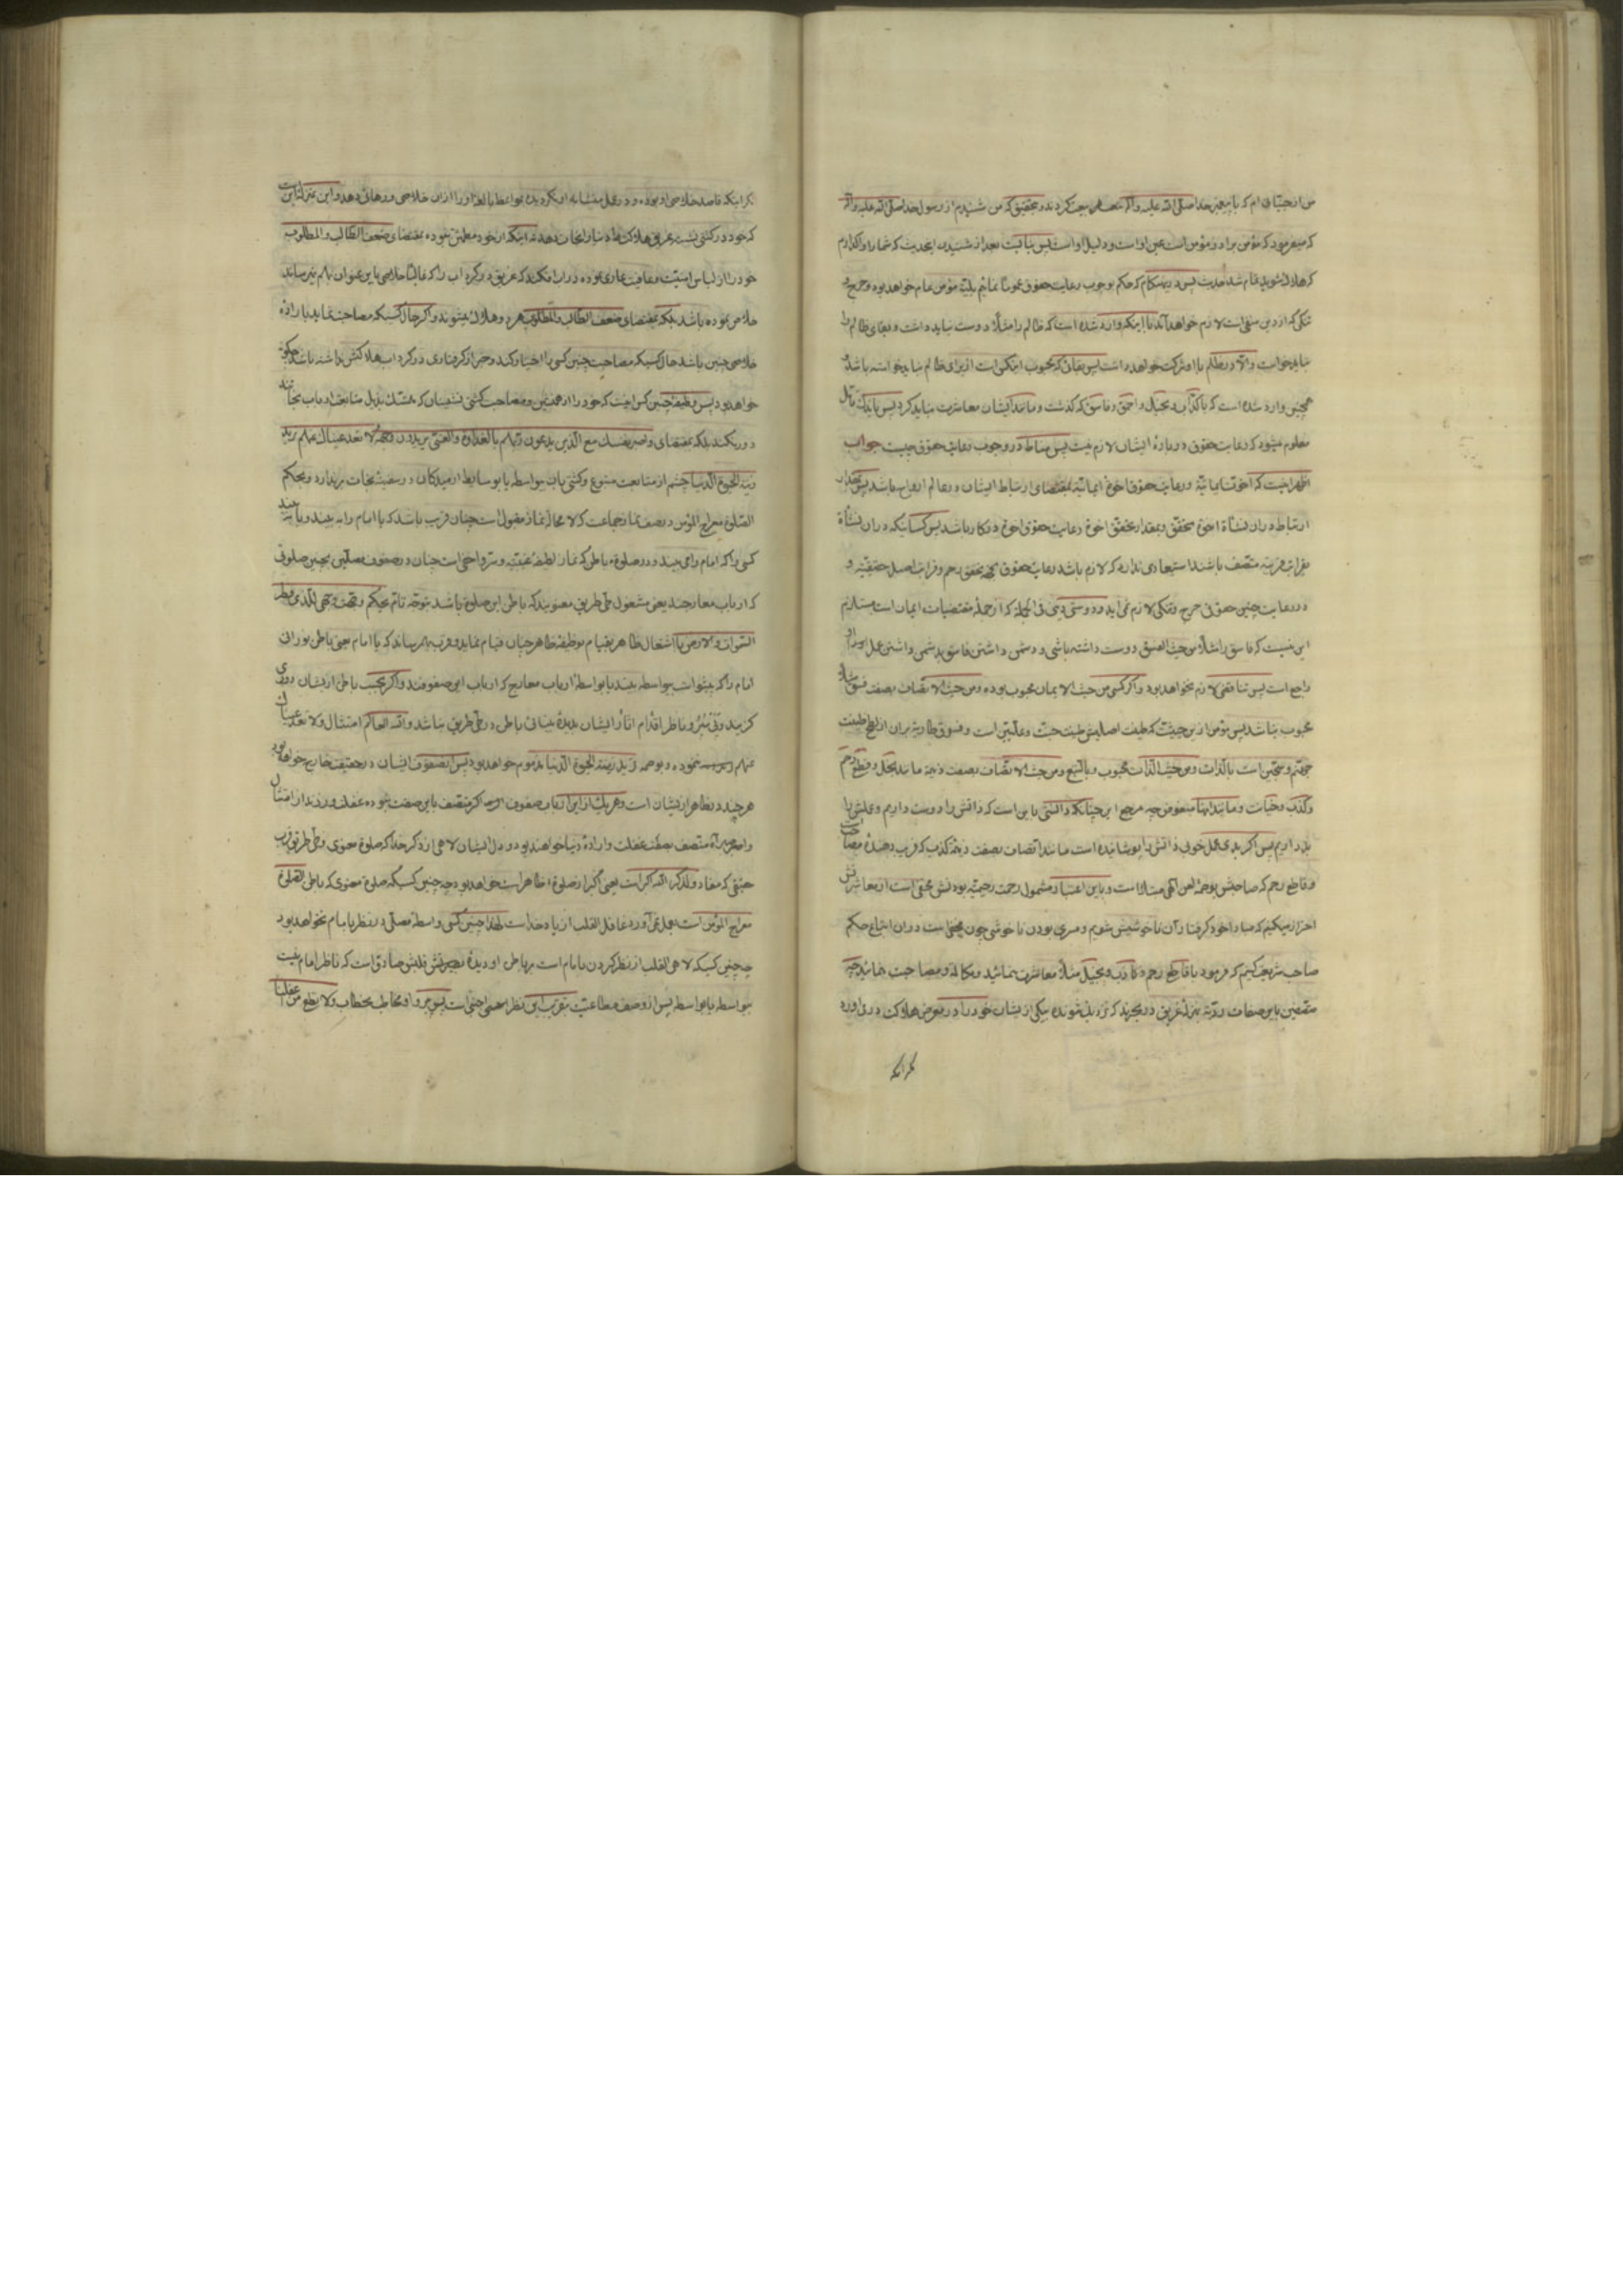 من از جنیان‌ام که با پیغمبر خدا صلی الله علیه وآله بیعت کردند و بتحقیق که من شنیدم از رسول خدا صلی الله علیه وآله
که میفرمود که مؤمن برادر مؤمن است عین او است و دلیل او است پس نبایست بعد از شنیدن این حدیث که شما را واگذارم
که هلاک شوید تمام شد حدیث پس در هنگام که حکم بوجوب رعایت حقوق عموما نمائیم بلیّه مؤمن عام خواهد بود و حرج و
تنگی که از دین منفی است لازم خواهد آمد با اینکه وارد شده است که ظالم را مثلا دوست نباید داشت و بقای ظالم را
نباید خواست والا در ظلم با او شرکت خواهد داشت پس بقائی که محبوب است از برای ظالم نباید خواسته باشد و
همچنین وارد شده است که با کذّاب و بخیل و احمق و فاسق که گذشت و مانند ایشان معاشرت نباید کرد پس باندک تأمّل
معلوم میشود که رعایت حقوق در باره ایشان لازم نیست پس مناط در وجوب رعایت حقوق چیست جواب
اظهر اینست که اخوّت ایمانیّه و رعایت حقوق اخوة ایمانیّه بمقتضای ارتباط ایشان در عالم ارواح باشد پس بمقدار
ارتباط در آن نشأة اخوة متحقق و بمقدار تحقّق اخوة رعایت حقوق اخوة در کار باشد پس کسانیکه در آن نشأة
بقرابت قریبه متّصف باشند استبعادی ندارد که لازم باشد رعایت حقوق بجهة تحقق رحم و قرابت اصل حقیقیّه و
در رعایت چنین حقوق حرج و تنگی لازم نمی آید و دوستی دینی فی الجمله که از جملهٔ مقتضیات ایمان است مستلزم
این نیست که فاسق را مثلا من حیث الفسق دوست داشته باشی و دشمن داشتن فاسق بدشمنی داشتن عمل او
راجع است پس تناقضی لازم نخواهد بود و اگر کسی من حیث الایمان محبوب بوده و من حیث الاتّصاف بصفت فسق مثلا
محبوب نباشد پس مؤمن از این حیثیت که طینت اصلیش طینت جنّت و علّیین است و فسوق طاریه بر آن از لطخ طینت
جهنّم و سجّین است بالذات و من حیث الذّات محبوب و بالتبع و من حیث الاتّصاف بصفت ذمیمه مانند بخل و قطع رحم
و کذب و خیانت و مانند اینها مبغوض چه مرجع این چنانکه دانستی باین است که ذاتش را دوست داریم و عملش را
بد داریم پس اگر بدی عمل خوبی ذاتش را پوشانیده است مانند اتصاف بصفت ذمیمه کذب که فریب دهندهٔ مصاحب
و قاطع رحم که صاحبش بوجهٔ لعن الهی مبتلا است و باین اعتبار مشمول رحمت رحیمیّه بودنش مخفی است از معاشرتش
احتراز میکنیم که مبادا خود گرفتار آن ناخوشیش شویم و مسری بودن ناخوشی چون مخفی است در آن اتباع حکم
صاحب شریعت کنیم که فرمود با قاطع رحم و کاذب و بخیل مثلا معاشرت ننمائید و مکالمه و مصاحبت ننمائید چه
متصفین باین صفات ردیّه بمنزلهٔ غریق در بحرند که نزدیک شونده بیکی از ایشان خود را در معرض هلاکت درمی آورد
مگر اینکه
مگر اینکه قاصد خلاصی او بوده و در عمل متشابه او نگردیده بمواعظ بالغه او را از آن خلاصی و رهائی دهد و این بمنزلهٔ اینست
که خود در کشتی نشسته غریق هلاکت افتاده را نجات دهد نه اینکه از خود مطمئن نبوده بمقتضای ضعف الطالب والمطلوب
خود را از لباس امنیّت و عافیت عاری نموده در آب افکند که غریق در گرداب را که غالبا خلاصی باین عنوان بهم نمیرساند
خلاص نموده باشد بلکه بمقتضای ضعف الطالب والمطلوب هر دو هلاک میشوند و اگر حال کسیکه مصاحبت نماید باراده
خلاصی چنین باشد حال کسیکه مصاحبت چنین کسی را اختیار کند و خبر از گرفتاری در گرداب هلاکتش نداشته باشد چگونه
خواهد بود پس وظیفه چنین کس اینست که خود را از همنشینی و مصاحبت کشتی نشینان که متمسّک بذیل متابعت ارباب نجاتند
دور نکند بلکه بمقتضای واصبر نفسک مع الّذین یدعون ربّهم بالغداوة والعشیّ یریدون وجهه ولا تعد عیناک عنهم ترید
زینة الحیوة الدّنیا چشم از متابعت متبوع و کشتی بان بیواسطه یا بوسایط آرمیدگان در سفینهٔ نجات برندارد و بحکم
الصّلوة معراج المؤمن در صف نماز جماعت که لا محاله نماز مقبول است چنان قریب باشد که یا امام را به بیند و یا به بیند
کسی را که امام را می بیند و در صلوة باطن که نماز لطیفهٔ غیبیّه و سرّ و اخفی است چنان در صفوف مصلّین بچنین صلوتی
که ارباب معارجند یعنی مشغول طی طریق معنویند که باطن این صلوة باشد بتوجّه تام بحکم وجّهت وجهی للّذی فطر
السّموات والارض با اشتغال ظاهر بقیام بوظیفهٔ ظاهر چنان قیام نماید و قرب بهم رساند که یا امام یعنی باطن نورانی
امام را که پیشوا است بیواسطه بیند یا بواسطهٔ ارباب معارج که ارباب این صفوفند و اگر بحسب باطن از ایشان دوری
گزیند و ناظر اقدام آثار ایشان بدیدهٔ بینائی باطن در طی طریق نباشد والله العالم امتثال ولا تعد عیناک
عنهم نموده و بوصمه ترید زینة الحیوة الدّنیا مذموم خواهد بود پس از صفوف ایشان در حقیقت خارج خواهد بود
هرچند در ظاهر از ایشان است و هر یک از این ارباب صفوف اگر متّصف باین صفت شوند غفلت ورزند از امتثال
متّصف بصفت غفلت و ارادهٔ دنیا خواهند بود و دل ایشان لاهی از ذکر خدا که صلوة معنوی و طی طریق قرب
حقیقی که مفاد ولذکر الله اکبر است یعنی اکبر از صلوة ظاهر است خواهد بود چه چنین کسیکه صلوة معنوی که باطن الصّلوة
معراج المؤمن است بعمل نمی آورد و غافل القلب از یاد خدا است لهذا چنین کسی واسطه مصلّی در نظر بامام نخواهد بود
چه چنین کسیکه لاهی القلب از نظر کردن بامام است بر باطن او دیدهٔ بصیرتش صادق است که ناظر امام نیست
بیواسطه یا بواسطه پس از وصف مطاعیّت بتقریب این نظر اعمی اجنبی است پس پیرو او مخاطب بخطاب ولا تطع من اغفلنا